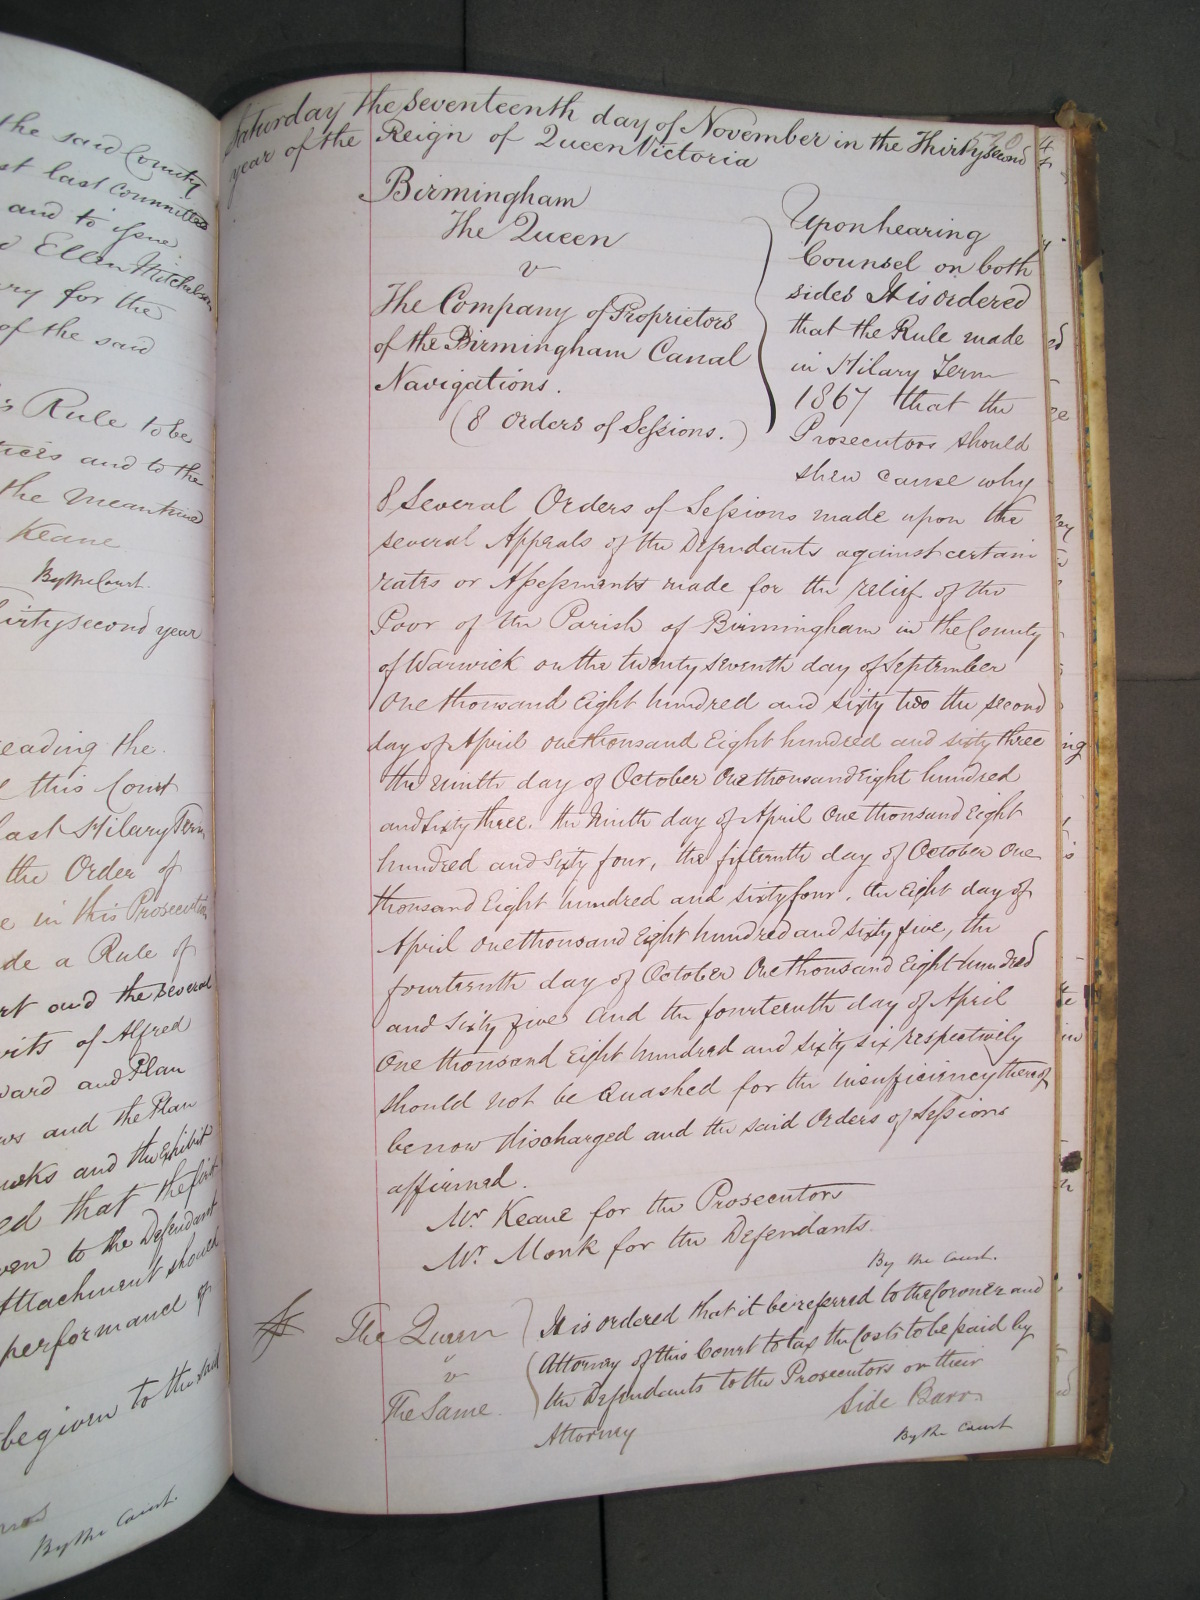 the said County
st last committed
and to issue
Ellen Mitchelson
ry for the
of the said
s Rule to be
tices and to the
the meantime
Keane
By the Court.
irty second year
eading the
this Court
last Hilary Term
the Order of
e in this Prosecution
de a Rule of
rt and the several
vits of Alfred
ward and Plan
ws and the Plan
wks and the Exhibit
ed that the first
ven to the Defendant
Attachment should
performance of
be given to the said
By the Court.
Saturday the seventeenth day of November in the Thirty second
year of the Reign of Queen Victoria
Birmingham
The Queen
v
The Company of Proprietors
of the Birmingham Canal
Navigations.
(8 Orders of Sessions.)
Upon hearing
Counsel on both
sides It is ordered
that the Rule made
in Hilary Term
1867 that the
Prosecutors should
shew cause why
8 Several Orders of Sessions made upon the
several Appeals of the Defendants against certain
rates or Assessments made for the relief of the
Poor of the Parish of Birmingham in the County
of Warwick on the twenty seventh day of September
One thousand Eight hundred and sixty two the second
day of April one thousand Eight hundred and sixty three
the ninth day of October One thousand Eight hundred
and sixty three. the Ninth day of April One thousand Eight
hundred and Sixty four, the fifteenth day of October One
thousand Eight hundred and sixty four. the Eight day of
April one thousand Eight hundred and sixty five, the
fourteenth day of October One thousand Eight hundred
and Sixty five and the fourteenth day of April
One thousand Eight hundred and sixty six respectively
should not be Quashed for the insufficiency thereof
be now discharged and the said Orders of Sessions
affirmed.
Mr. Keane for the Prosecutors
Mr. Monk for the Defendants.
By the Court.
The Queen
v
The Same.
It is ordered that it be referred to the Coroner and
Attorney of this Court to tax the Costs to be paid by
the Defendants to the Prosecutors or their
Attorney
Side Barr.
By the Court